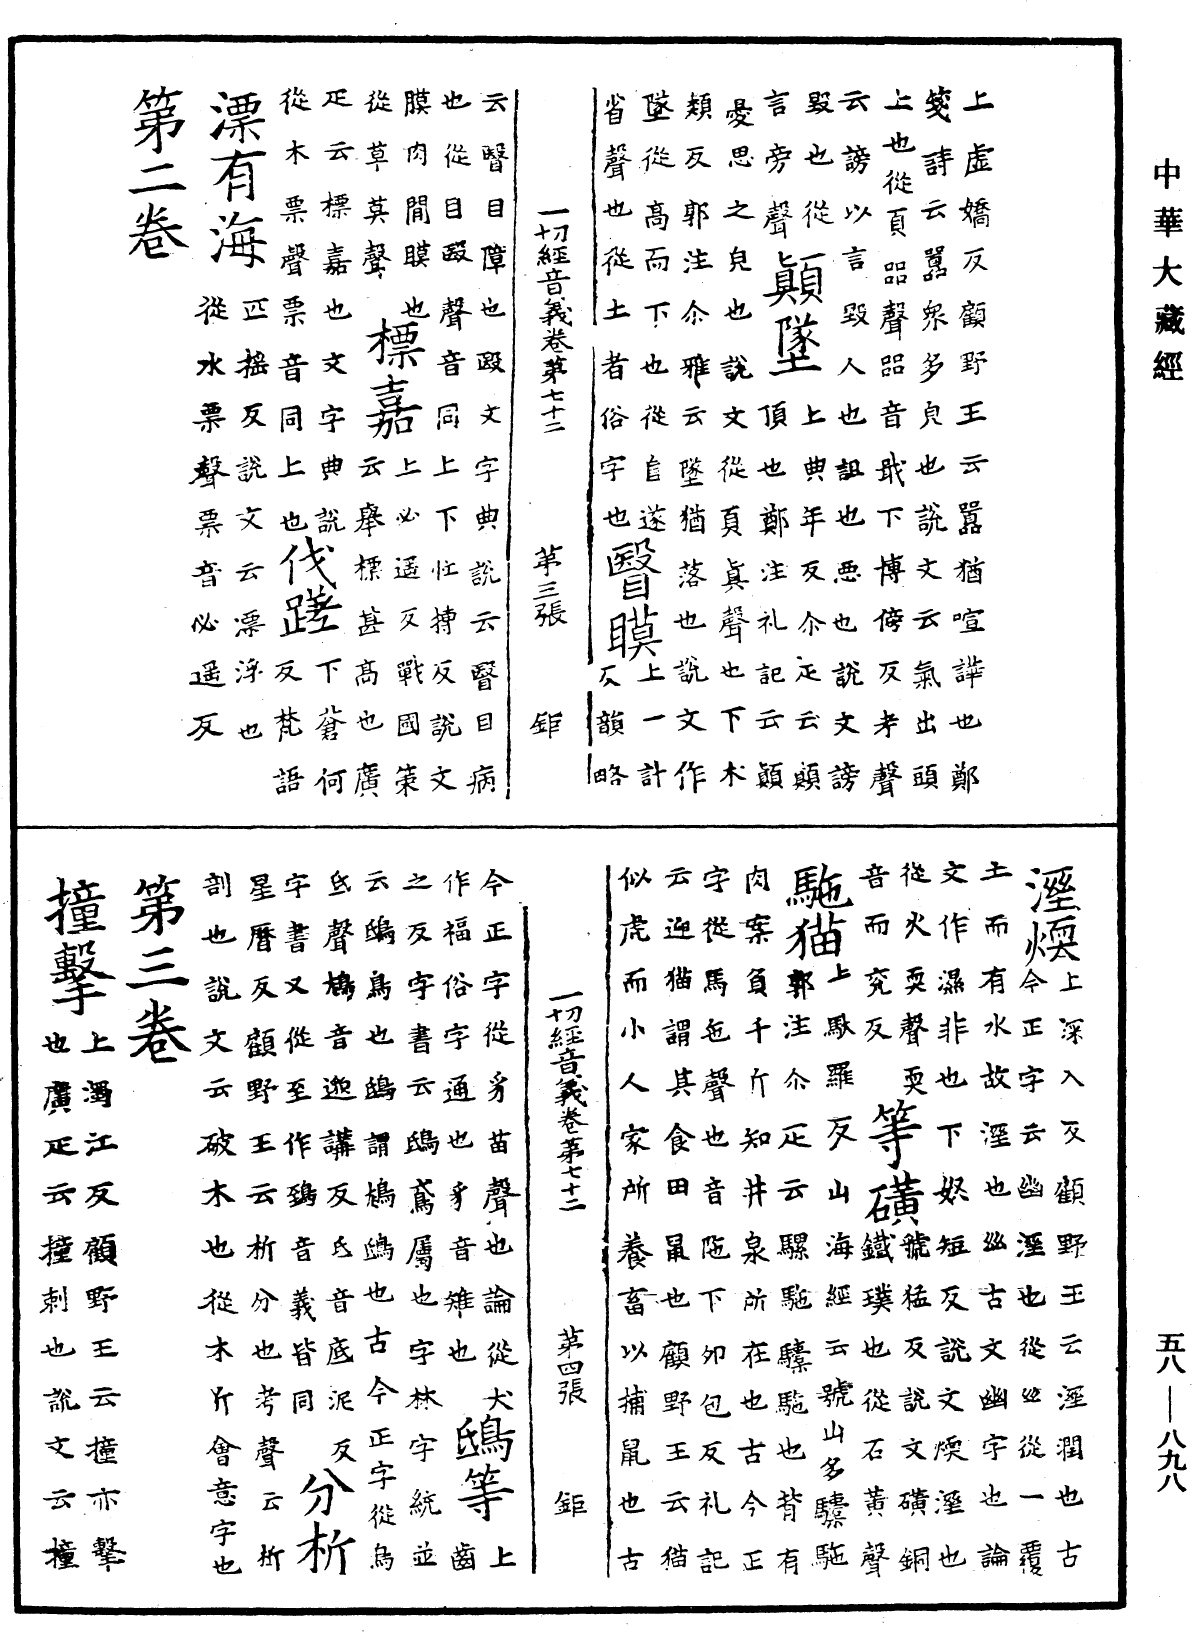 中華大藏經
上虛嬌反顧野王云囂猶喧譁也鄭
箋詩云囂衆多皃也說文云氣出頭
上也從頁㗊聲㗊音戢下博傍反考聲
云謗以言毀人也詛也惡也說文謗
毀也從言旁聲
顚墜
上典年反尒疋云顚
頂也鄭注礼記云顚
憂思之皃也說文從頁眞聲也下木
類反郭注尒雅云墜猶落也說文作
墜從高而下也從𨸏遂
省聲也從土者俗字也
醫瞙
上一計
反韻略
一切經音義卷苐七十二
苐三張
鉅
云醫目障也毉文字典說云醫目病
也從目毉聲音同上下忙摶反說文
膜肉閒瞙也
從草莫聲
標嘉
上必遥反戰國策
云舉標甚高也廣
疋云標嘉也文字典說
從木票聲票音同上也
伐蹉
下蒼何
反梵語
漂有海
匹摇反說文云漂浮也
從水票聲票音必遥反
第二卷
溼煗
上深入反顧野王云溼潤也古
今正字云幽溼也從𢆶從一覆
土而有水故溼也𢆶古文幽字也論
文作濕非也下㛂短反說文煗溼也
從火耎聲耎
音而兖反
等礦
虢猛反說文礦銅
鐵璞也從石黃聲
駞猫
上馱羅反山海經云號山多驝駞
郭注尒疋云騾駞驝駞也背有
肉案負千斤知井泉所在也古今正
字從馬㐌聲也音陁下卯包反礼記
云迎猫謂其食田鼠也顧野王云猫
似虎而小人家所養畜以捕鼠也古
一切經音義卷苐七十二
苐四張
鉅
今正字從豸苗聲也論從犬
作福俗字通也豸音雉也
鴟等
上齒
之反字書云鴟鳶屬也字林字統並
云鴟鳥也鴟謂鵃鴟也古今正字從鳥
氐聲鵃音逊講反氐音底泥反
字書又從至作鵄音義皆同
分析
星曆反顧野王云析分也考聲云析
剖也說文云破木也從木斤會意字也
第三卷
撞擊
上濁江反顧野王云撞亦擊
也廣疋云撞刺也說文云撞
五八—八九八